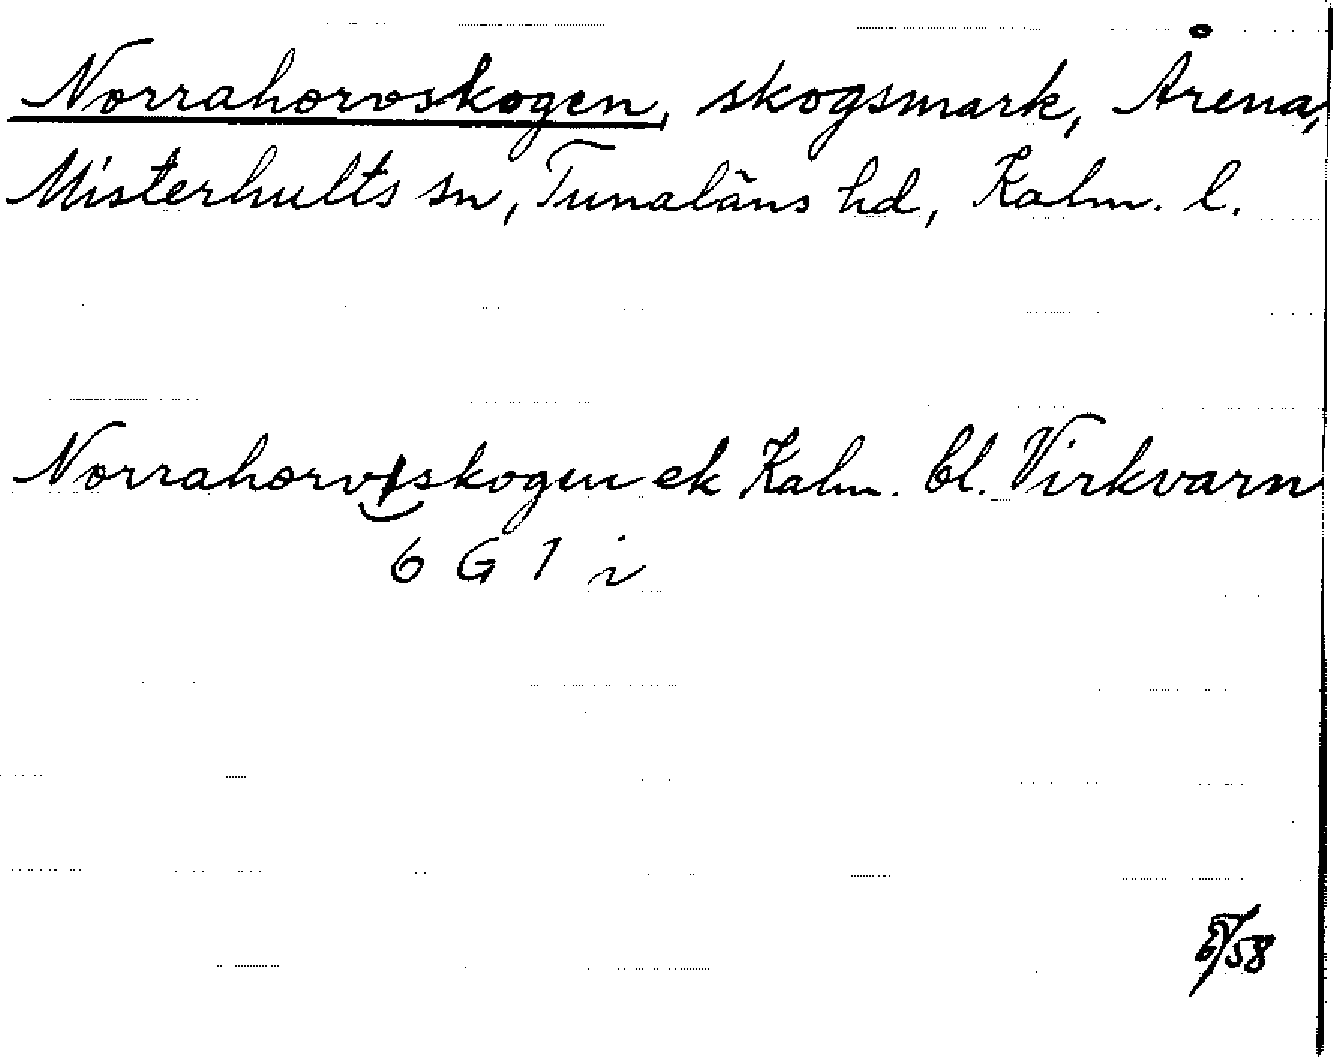 Norrahorvskogen, skogsmark, Årena,
Misterhults sn, Tunaläns hd, Kalm. l.
Norrahorvskogen ek Kalm. bl. Virkvarn
6 G 1 i